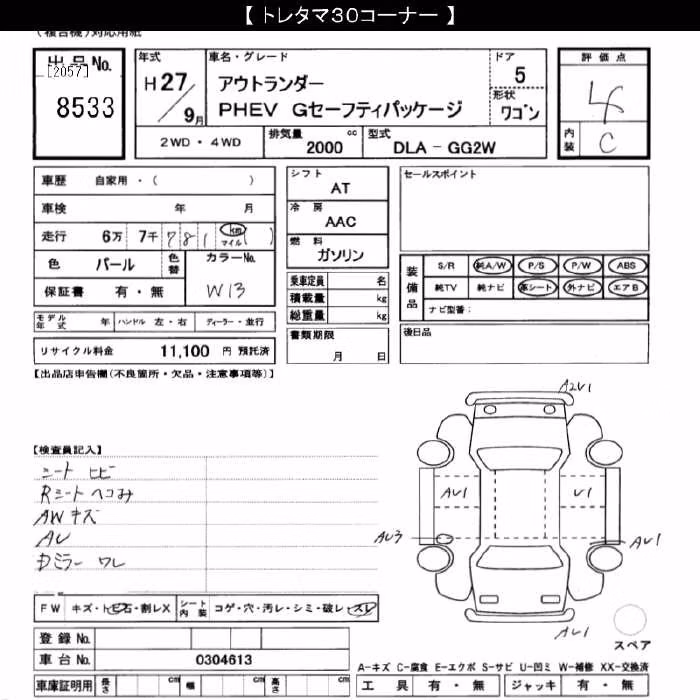 【 トレタマ30コーナー 】
(複合機)対応用紙
出品No.
[2057]
8533
年式
H 27
9月
車名・グレード
アウトランダー
PHEV Gセーフティパッケージ
ドア
5
形状
ワゴン
評価点
4
内装
C
2WD・4WD
排気量
2000 cc
型式
DLA - GG2W
車歴 自家用・( )
車検 年 月
走行 6万 7千 7 8 1 km マイル ( )
色 パール 色替 カラーNo.
保証書 有・無 W13
モデル年式 年 ハンドル 左・右 ディーラー・並行
リサイクル料金 11,100 円 預託済
シフト
AT
冷房
AAC
燃料
ガソリン
乗車定員 名
積載量 kg
総重量 kg
書類期限
月 日
セールスポイント
装備品
S/R 純A/W P/S P/W ABS
純TV 純ナビ 革シート 外ナビ エアB
ナビ型番:
後日品
【出品店申告欄(不良箇所・欠品・注意事項等)】
【検査員記入】
シート ヒビ
Rシート ヘコみ
AWキズ
AU
Dミラー ワレ
A2U1
AU1
U1
AU3
AU1
AU1
スペア
FW キズ・ト石・割レX
シート内装 コゲ・穴・汚レ・シミ・破レ・スレ
登録No.
車台No. 0304613
車庫証明用 長さ cm 幅 cm 高さ cm
A-キズ C-腐食 E-エクボ S-サビ U-凹ミ W-補修 XX-交換済
工具 有・無 ジャッキ 有・無